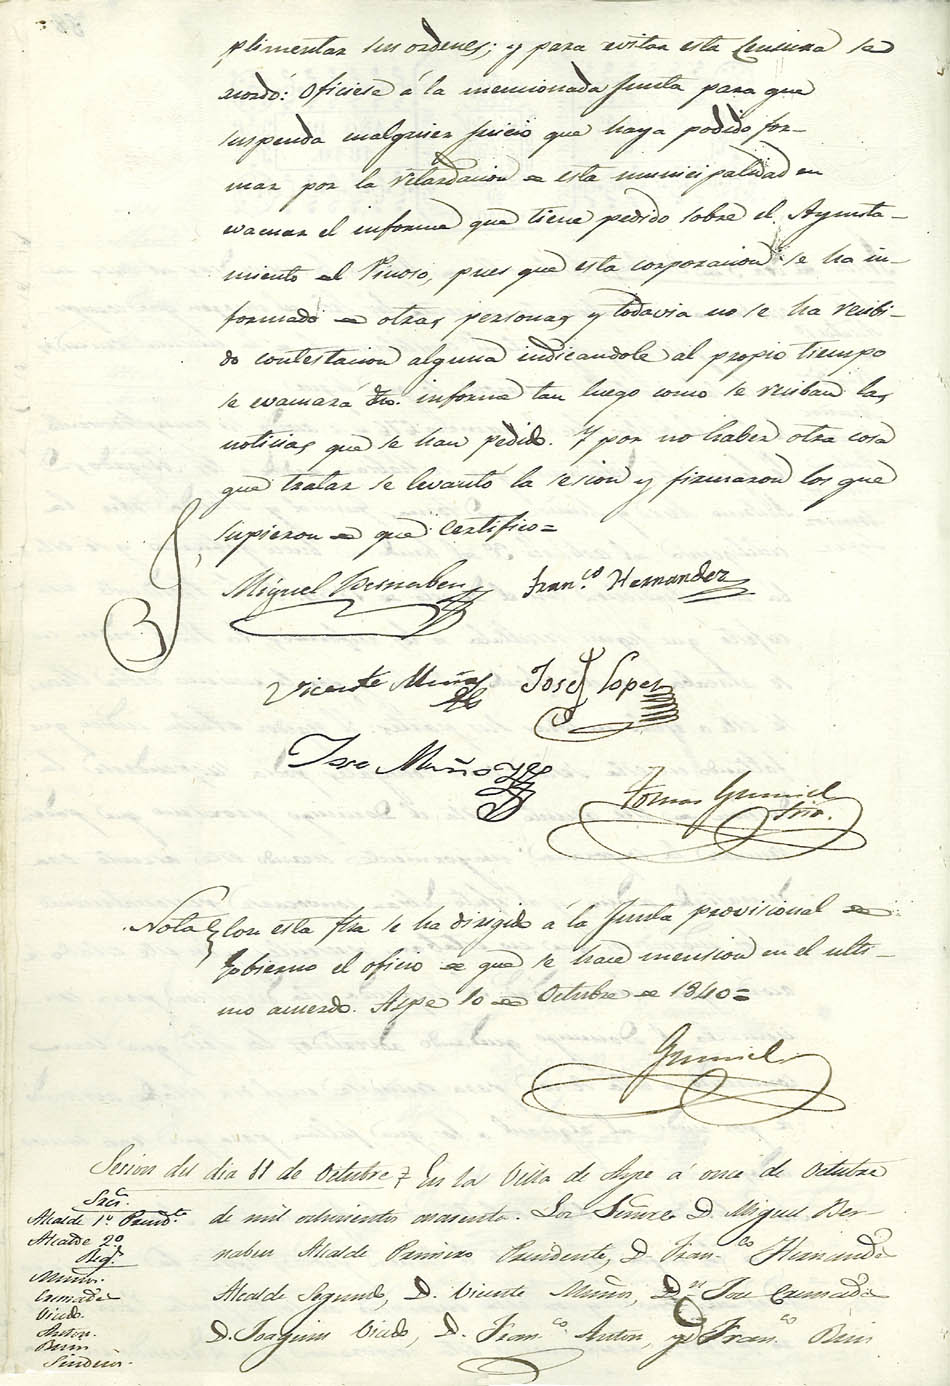 plimentar sus ordenes; y para evitar esta censura se
acordó: Oficiese á la mencionada Junta para que
suspenda cualquier juicio que haya podido for-
mar por la retardacion de esta municipalidad en
evacuar el informe que tiene pedido sobre el Ayunta-
miento del Pinoso, pues que esta corporacion se ha in-
formado de otras personas y todavia no se ha recibi-
do contestacion alguna indicandole al propio tiempo
se evacuará dho. informe tan luego como se reciban las
noticias que se han pedido. Y por no haber otra cosa
que tratar se levantó la sesion y firmaron los que
supieron de que certifico=
Miguel Bernabeu Fran.co Hernandez
Vicente Muñoz Jose Lopez
Jose Muñoz
Tomas Gumiel
Srio.
Nota Con esta fha se ha dirigido á la Junta provisional de
Gobierno el oficio de que se hace mension en el ulti-
mo acuerdo. Aspe 10 de Octubre de 1840=
Gumiel
Sesion del dia 11 de Octubre En la Villa de Aspe á once de Octubre
Sres.
Alcalde 1o Presid.te
Alcalde 2o
Reg.s
Muñoz.
Cremades
Vicedo.
Anton.
Beno
Sindico.
de mil ochocientos cuarenta. Los Señores D. Miguel Ber-
nabeu Alcalde Primero Presidente, D. Fran.co Hernandez
Alcalde Segundo, D. Vicente Muñoz, D.n Jose Cremades
D. Joaquin Vicedo, D. Fran.co Anton, y D Fran.co